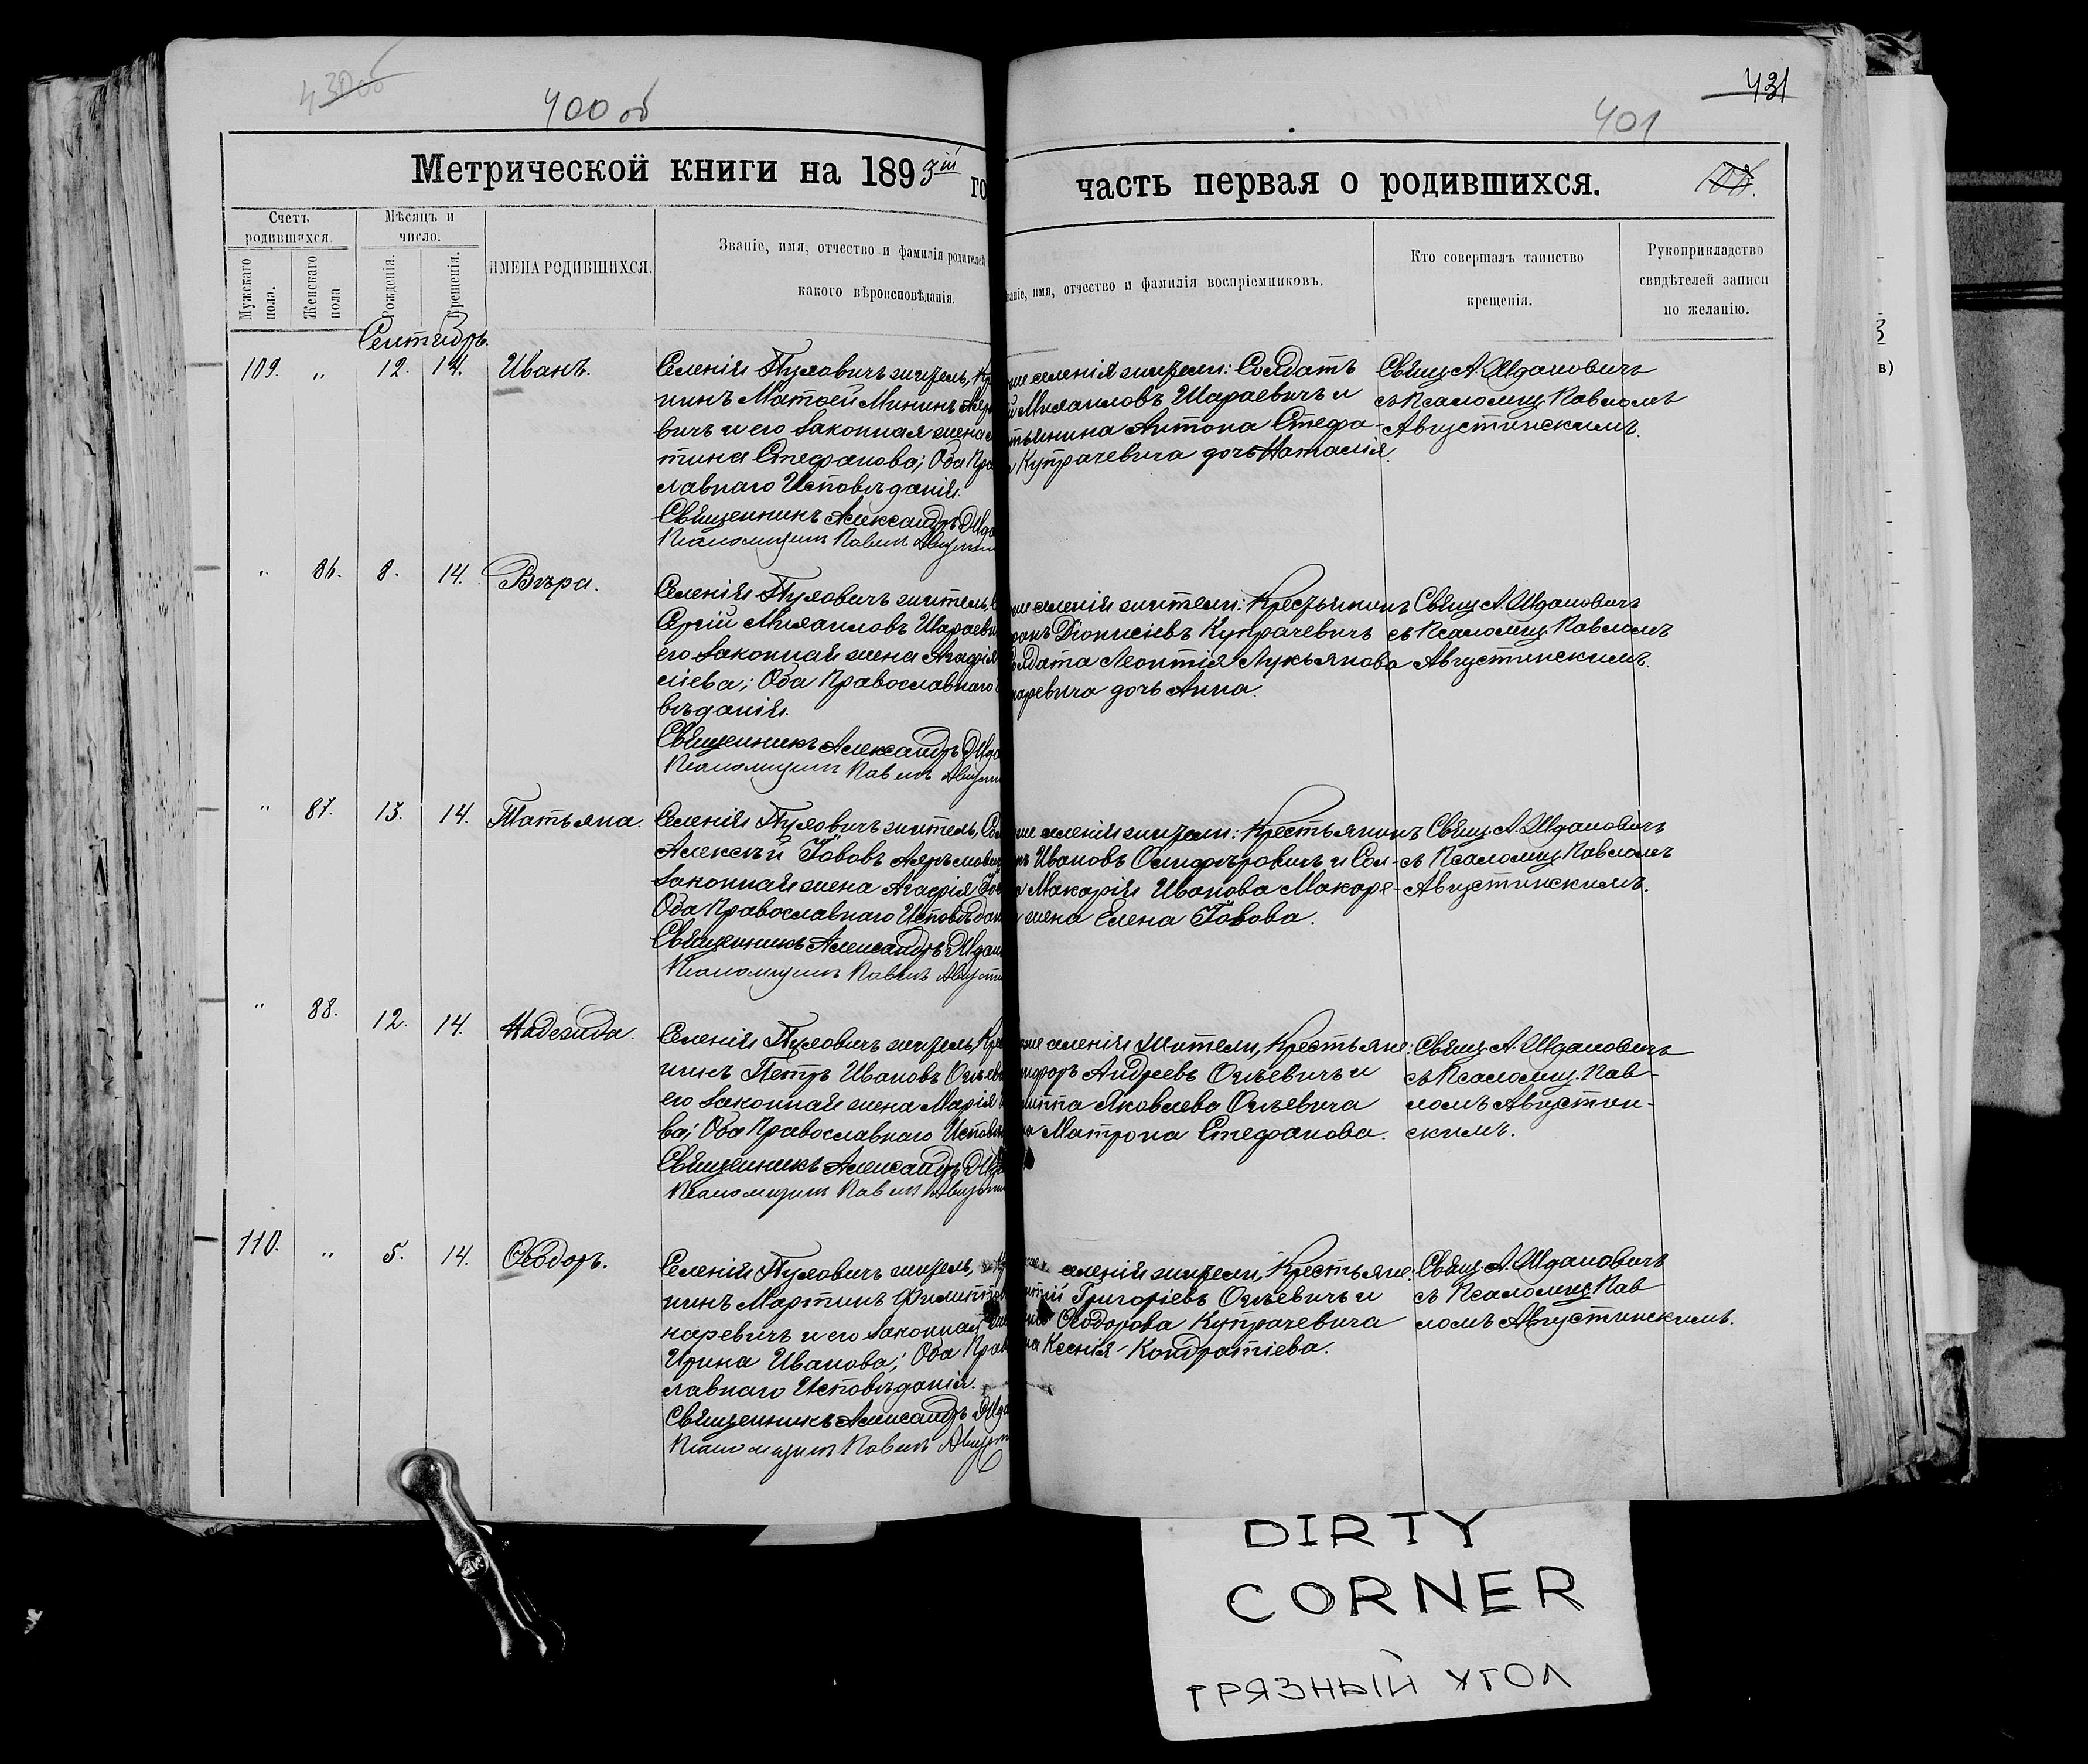 430об
400 об
431
401
Метрической книги на 1893 ій го
часть первая о родившихся.
Счетъ родившихся.
Мѣсяцъ и число.
Мужскаго пола.
Женскаго пола
Рожденія.
Крещенія.
ИМЕНА РОДИВШИХСЯ.
Званіе, имя, отчество и фамилія родителей
какого вѣроисповѣданія.
званіе, имя, отчество и фамилія воспріемниковъ.
Кто совершалъ таинство
крещенія.
Рукоприкладство
свидѣтелей записи
по желанію.
Сентябрь.
109. „ 12. 14. Иванъ.
Селенія Пуховичъ житель, Кр
нинъ Матѳей Мининъ
вичъ и его законная жена
тина Стефанова; Оба Пра
лавнаго Исповѣданія.
Священникъ Александръ Жда
Псаломщикъ Павелъ Августин
селенія жители: Солдатъ
Михаиловъ Шараевичъ и
тьянина Антона Стефа-
Купрачевича дочь Наталія.
Свящ. А. Ждановичъ
съ Псаломщ. Павломъ
Августинскимъ.
„ 86. 8. 14. Вѣра.
Селенія Пуховичъ житель,
Сергій Михаиловъ Шараеви
его законная жена Агафія
сіева; Оба Православнаго
вѣданія.
Священникъ Александръ Жда
Псаломщикъ Павелъ Августи
селенія жители: Крестьянинъ
Діонисіевъ Купрачевичъ
Солдата Леонтія Лукьянова
наревича дочь Анна.
Свящ. А. Ждановичъ
съ Псаломщ. Павломъ
Августинскимъ.
„ 87. 13. 14. Татьяна.
Селенія Пуховичъ житель, Сол
Алексѣй Іововъ
законная жена Агафія
Оба Православнаго Исповѣдан
Священникъ Александръ Ждан
Псаломщикъ Павелъ Августи
селенія жители: Крестьянинъ
Ивановъ Олифѣровичъ и Сол-
Макарія Иванова Макаре-
жена Елена Іовова.
Свящ. А. Ждановичъ
съ Псаломщ. Павломъ
Августинскимъ.
„ 88. 12. 14. Надежда.
Селенія Пуховичъ житель, Крес
нинъ Петръ Ивановъ Огіеви
его законная жена Марія
ва; Оба Православнаго Исповѣ
Священникъ Александръ Жда
Псаломщикъ Павелъ Августин
селенія Жители, Крестьяне:
Андреевъ Огіевичъ и
Яковлева Огіевича
Матрона Стефанова.
Свящ. А. Ждановичъ
съ Псаломщ. Пав-
ломъ Августин-
скимъ.
110. „ 5. 14. Ѳеодоръ.
Селенія Пуховичъ житель,
нинъ Мартинъ Филиппов
наревичъ и его законная
Ирина Иванова; Оба Прав
лавнаго Исповѣданія.
Священникъ Александръ Жда
Псаломщикъ Павелъ Августи
селенія жители, Крестьяне:
Григоріевъ Огіевичъ и
Ѳеодорова Купрачевича
Ксенія Кондратіева.
Свящ. А. Ждановичъ
съ Псаломщ. Пав
ломъ Августинскимъ.
DIRTY
CORNER
ГРЯЗНЫЙ УГОЛ